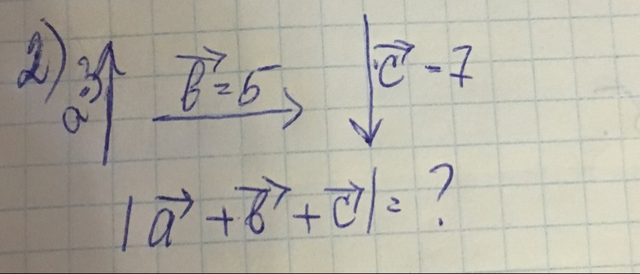 2) a 3 b⃗ = 5 c⃗ - 7
|a⃗ + b⃗ + c⃗| = ?